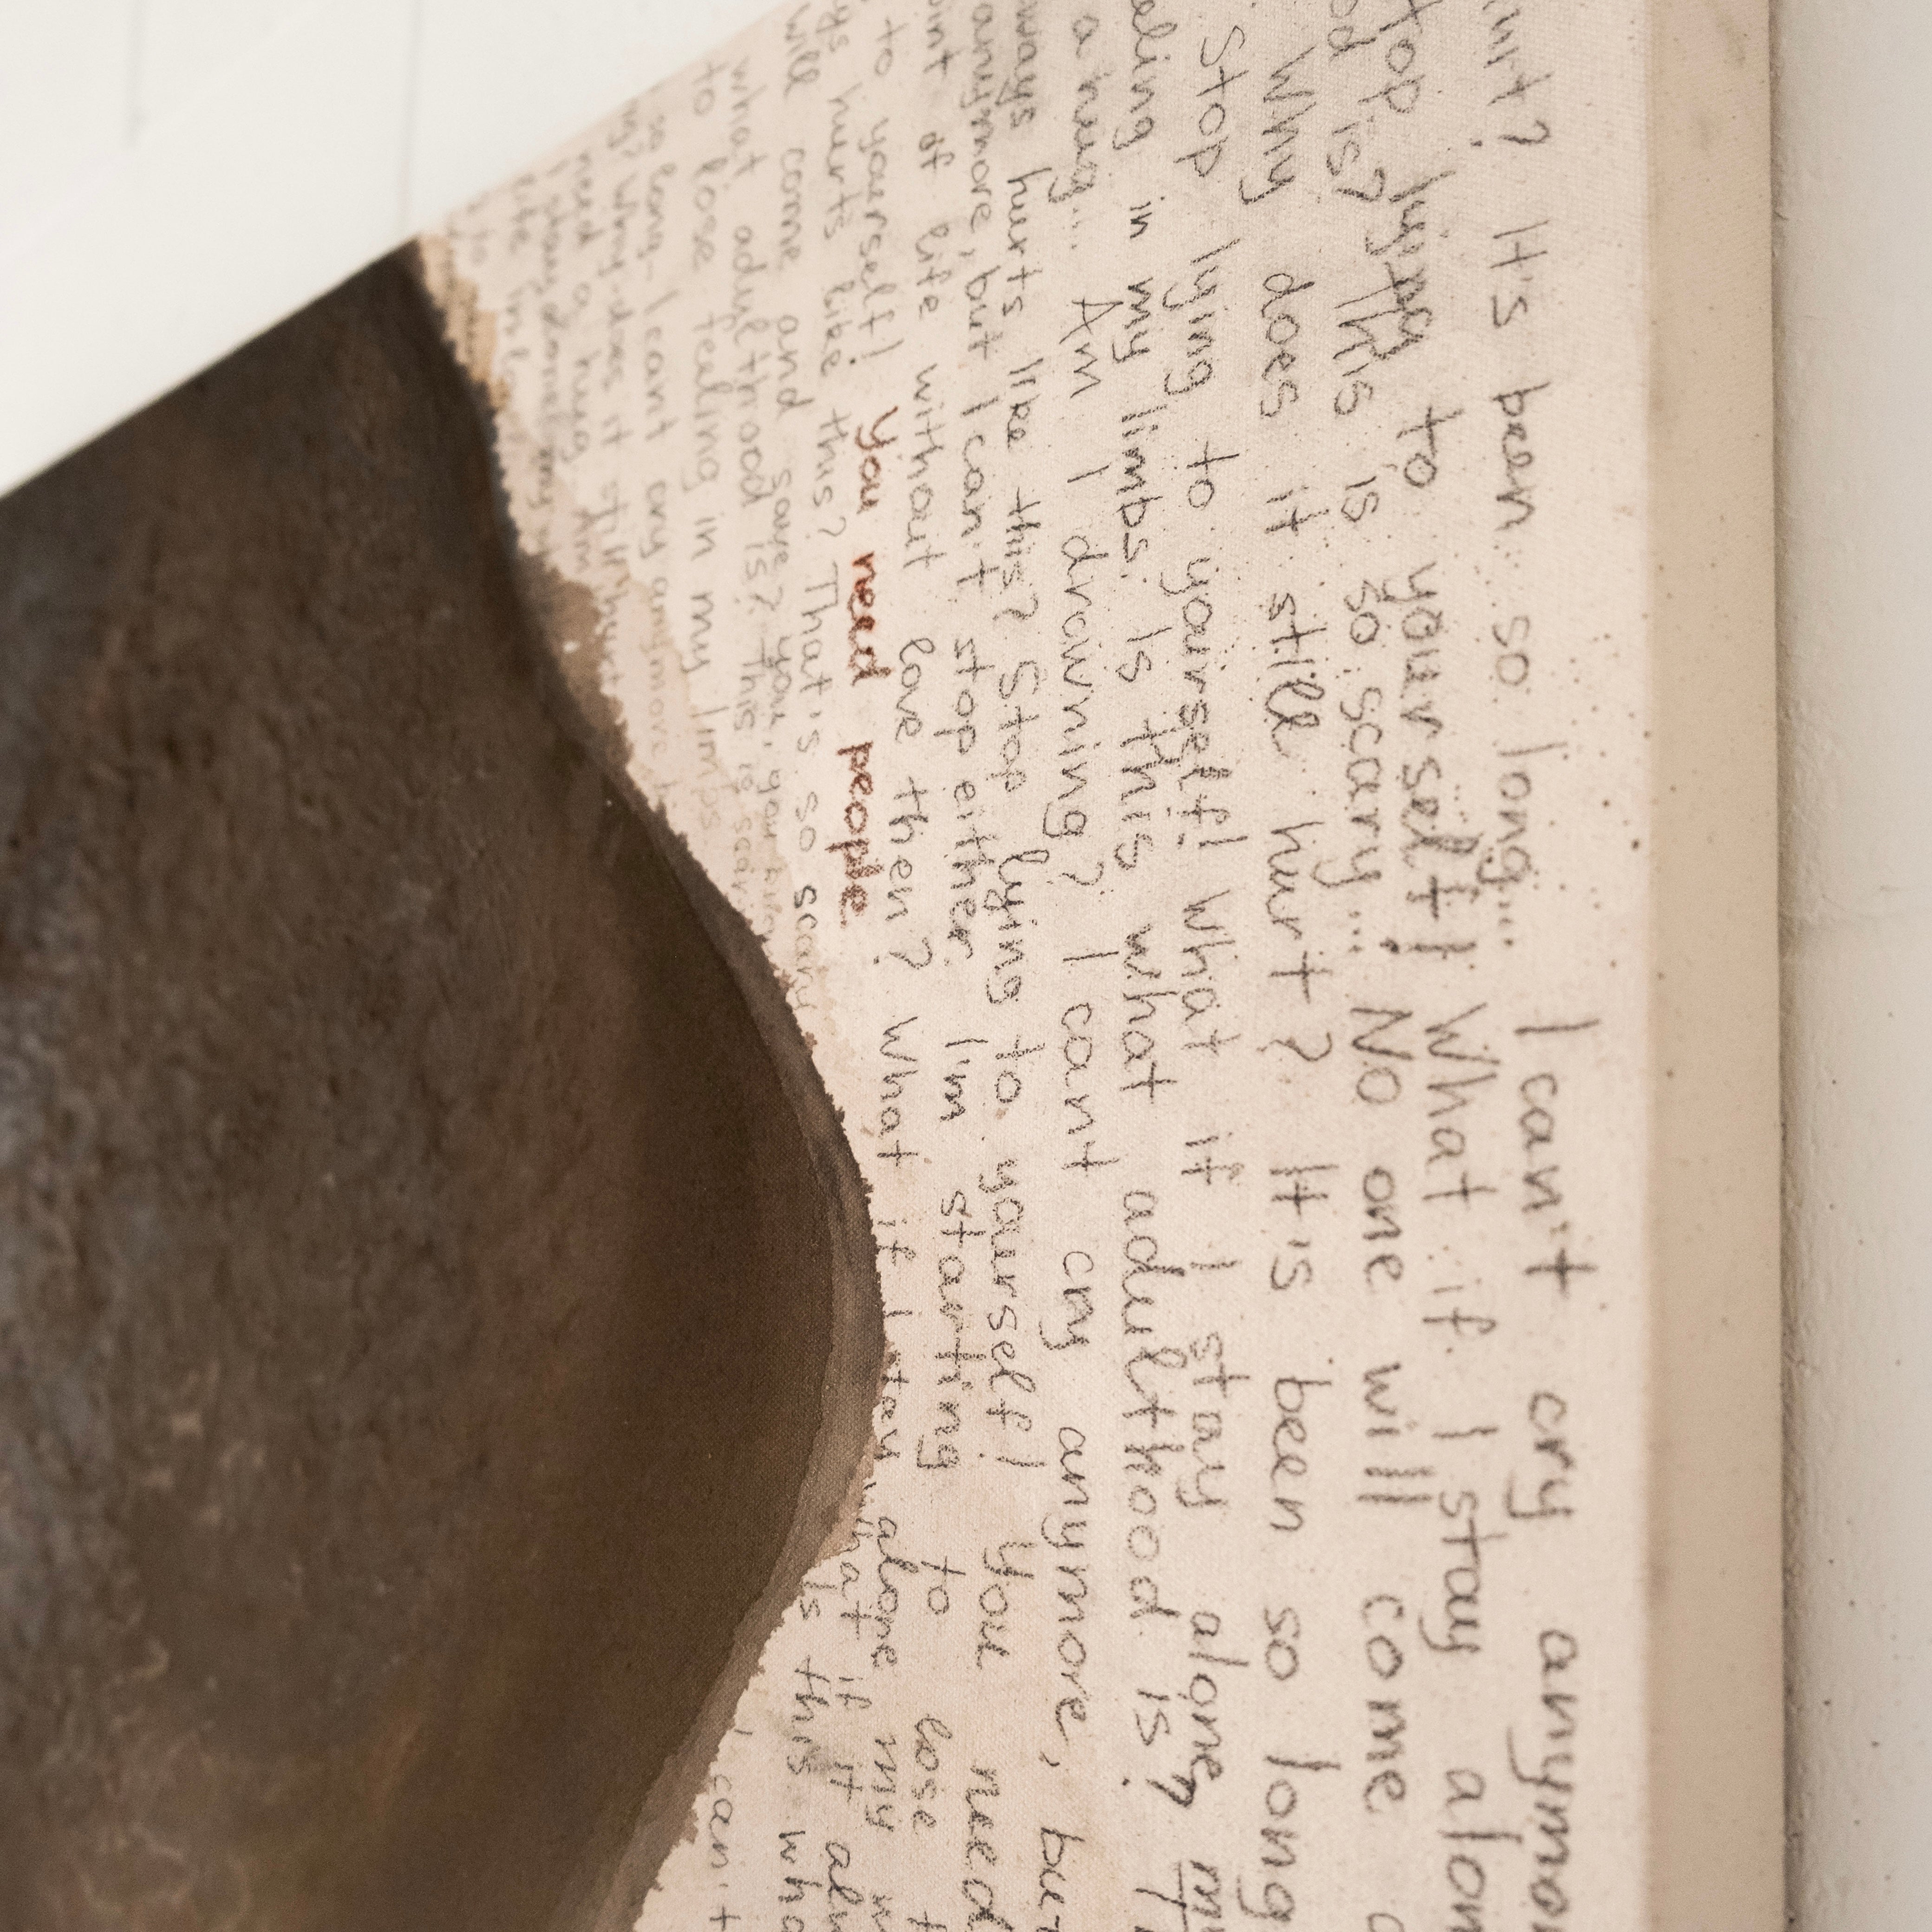 It's been so long... I can't cry
lying to yourself! What if I stay
is? This is so scary... No one will come
Why does it still hurt? It's been so long
Stop lying to yourself! What if I stay alone?
in my limbs. Is this what adulthood is?
a hug... Am I drowning? I cant cry anymore, but
hurts like this? Stop lying to yourself! you need
anymore, but I can't stop either. I'm starting to lose
of life without love then? What if I stay alone my
to yourself! you need people. what if it
hurts like this? That's so scary Is this
will come and save you, your I can't
what adulthood is? This is scary
to lose feeling in my limbs
so long- I can't cry anymore
Why does it still hurt
need a hug. Am
I stay alone my
life
to